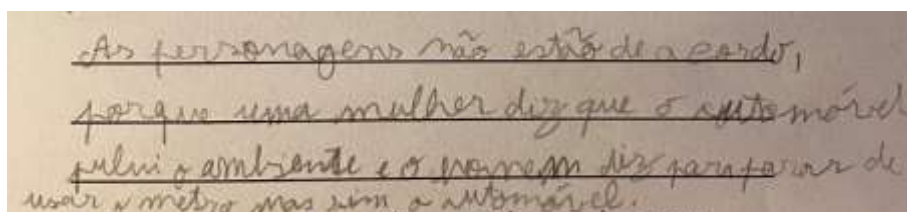 As personagens não estão de acordo,
porque uma mulher diz que o automóvel
pului o ambiente e o homem diz par parar de
usar o metro mas sim o automóvel.